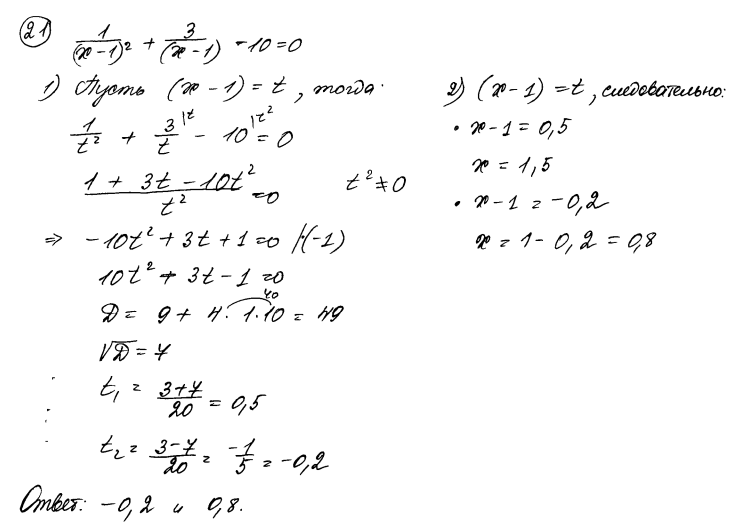 21
1/(x-1)² + 3/(x-1) - 10 = 0
1) Пусть (x-1) = t, тогда:
1/t² + 3/t |t - 10 |t² = 0
(1 + 3t - 10t²)/t² = 0 t² ≠ 0
⇒ -10t² + 3t + 1 = 0 |·(-1)
10t² + 3t - 1 = 0
D = 9 + 4·1·10 = 49
40
√D = 7
t₁ = (3+7)/20 = 0,5
t₂ = (3-7)/20 = -1/5 = -0,2
2) (x-1) = t, следовательно:
• x-1 = 0,5
x = 1,5
• x-1 = -0,2
x = 1 - 0,2 = 0,8
Ответ: -0,2 и 0,8.